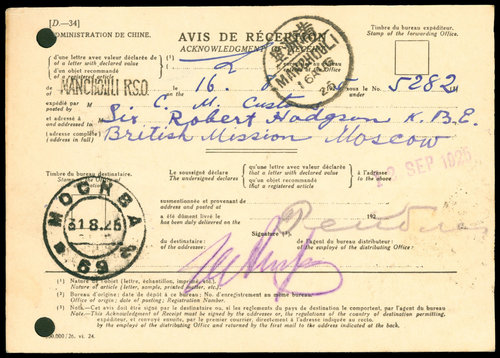 [D.—34]
ADMINISTRATION DE CHINE.
AVIS DE RÉCEPTION
ACKNOWLEDGMENT OF RECEIPT
Timbre du bureau expéditeur.
Stamp of the forwarding Office.
d'une lettre avec valeur déclarée de
of a letter with declared value
d'un objet recommandé
a registered article
(1)
MANCHOULI R.S.O.
MANCHOULI
le 16. sous le No. 5282 (1)
expédié par M C. M. Customs
et adressé à Sir Robert Hodgson K.B.E.
and addressed to
(adresse complète) British Mission Moscow
(full address)
Timbre du bureau destinataire.
Stamp of the
Le soussigné déclare
The undersigned declares
qu'une lettre avec valeur déclarée
that a letter with declared value
qu'un objet recommandé
that a registered article
à l'adresse
to the above
susmentionnée et provenant de
address and posted at
SEP 1925
a été dûment livré le
has been duly delivered on the
192
МОСКВА
31.8.25
69
Signature (3):
du destinataire:
of the addressee:
de l'agent du bureau distributeur:
of the distributing Office:
(1) Nature de l'objet (lettre, échantillon, imprimé, etc.)
Nature of article (letter, sample, printed matter, etc.)
(2) Bureau d'origine; date de dépôt à ce bureau; No. d'enregistrement au même bureau.
Office of origin; date of posting; Registration Number.
(3) Nota.—Cet avis doit être signé par le destinataire ou, si les règlements du pays de destination le comportent, par l'agent du bureau
Note.—This Acknowledgment of Receipt must be signed by the addressee or, the regulations of the country of destination permitting,
expéditeur, et renvoyé ensuite, par le premier courrier, directement à l'adresse indiquée au recto.
by the employé of the distributing Office and returned by the first mail to the address indicated at the back.
100,000/26. vi. 24.